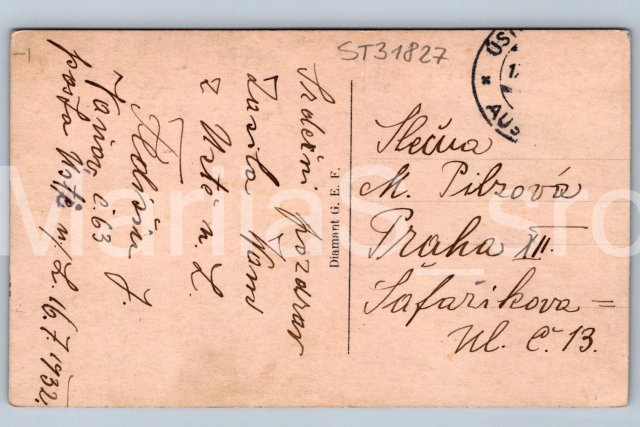 ST31827
ÚS
1
AUS
Srdečný pozdrav
zasílá Vám
z Ústí n. L.
J.
č. 63
pošta Ústí n/L. 16.7.1932.
Diamant G. E. F.
Slečna
M. Pilzová
Praha XII.
Šafaříkova =
Ul. č. 13.